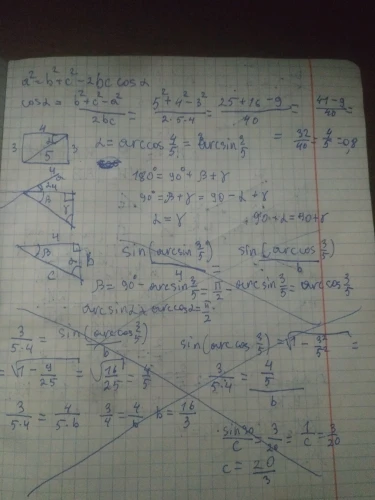 a² = b² + c² - 2bc cos α
cos α = (b² + c² - a²)/(2bc) = (5² + 4² - 3²)/(2·5·4) = (25 + 16 - 9)/40 = (41 - 9)/40 =
= 32/40 = 4/5 = 0,8
4
3 α 3
5
α = arccos 4/5 = arcsin 3/5
180° = 90° + β + γ
4
β γ
90° = β + γ = 90 - α + γ
α = γ 90 + α = 90 + γ
4
β α b
c
sin(arcsin 3/5)/4 = sin(arccos 3/5)/b
β = 90° - arcsin 3/5 = π/2 - arcsin 3/5 = arccos 3/5
arcsin α + arccos α = π/2
3/(5·4) = sin(arccos 3/5)/b
sin(arccos 3/5) = √(1 - 3²/5²) =
= √(1 - 9/25) = √(16/25) = 4/5
3/(5·4) = (4/5)/b
3/(5·4) = 4/(5·b) 3/4 = 4/b b = 16/3
sin 90/c = 3/20 = 1/c = 3/20
c = 20/3